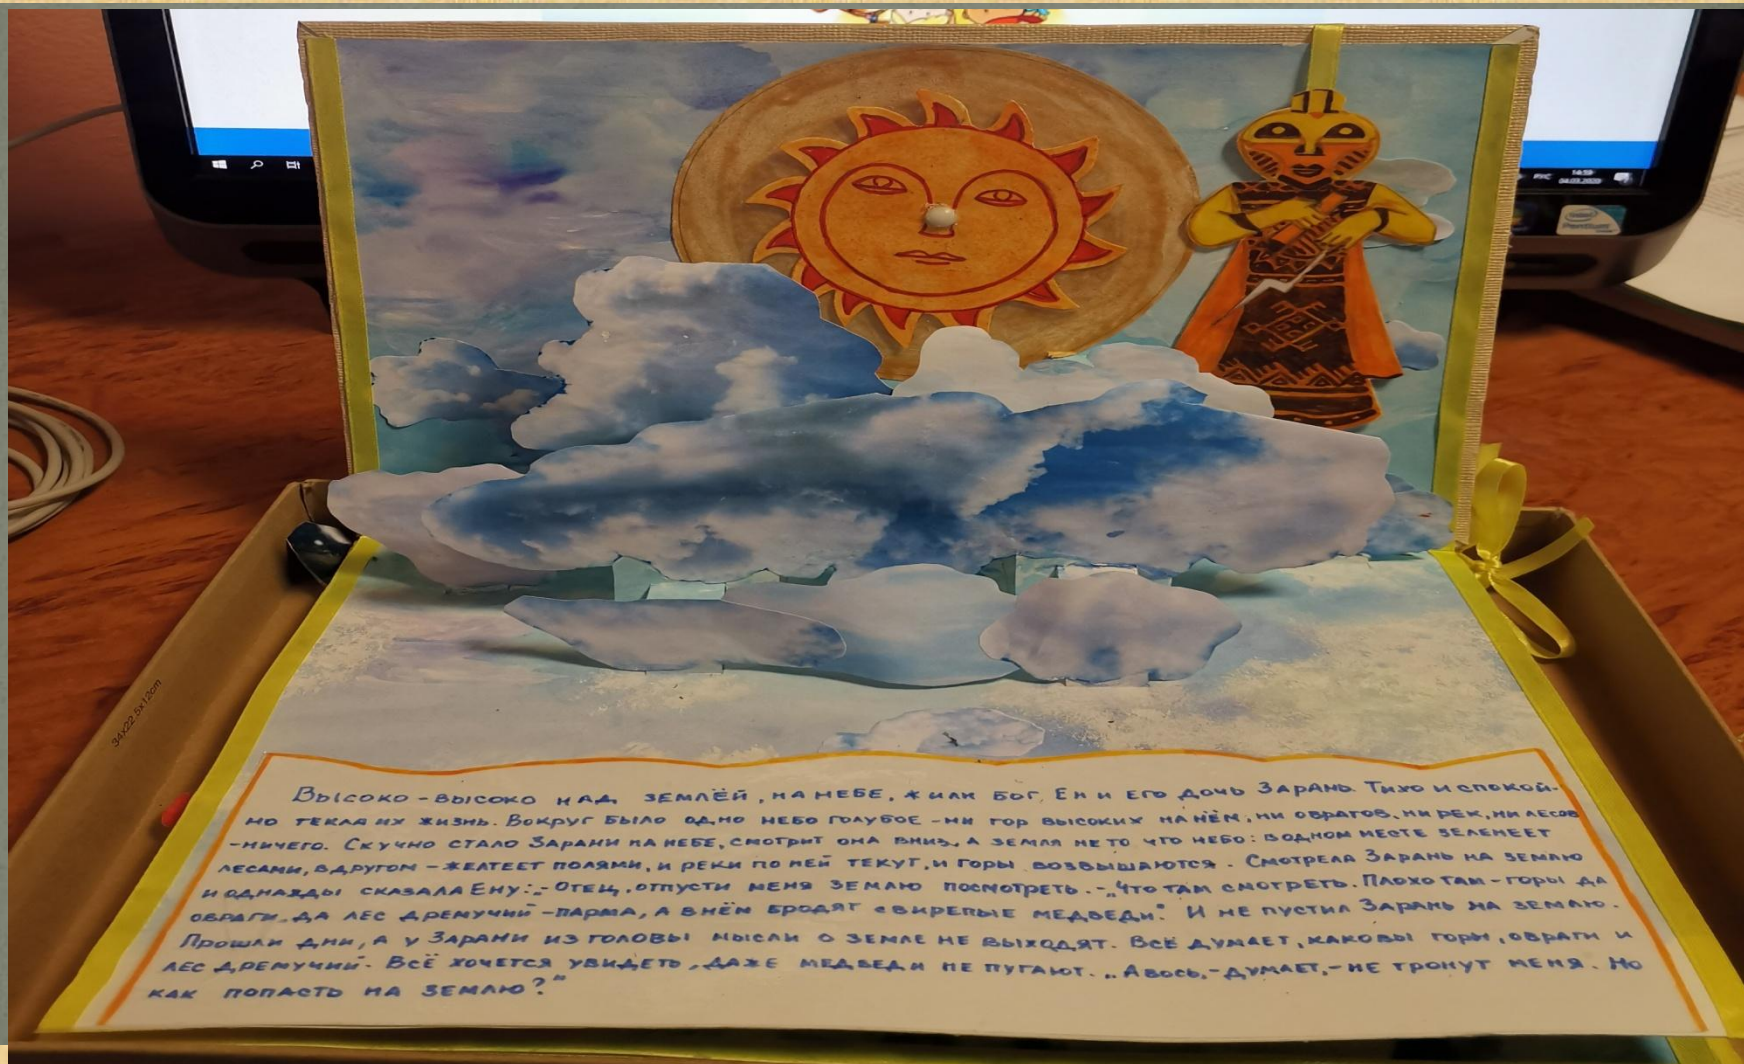 РУС
14:59
04.03.2020
intel
Pentium
34x22.5x12cm
Высоко-высоко над землёй, на небе, жили бог Ен и его дочь Зарань. Тихо и спокой-
но текла их жизнь. Вокруг было одно небо голубое - ни гор высоких на нём, ни оврагов, ни рек, ни лесов
- ничего. Скучно стало Зарани на небе, смотрит она вниз, а земля не то что небо: в одном месте зеленеет
лесами, в другом - желтеет полями, и реки по ней текут, и горы возвышаются. Смотрела Зарань на землю
и однажды сказала Ену: „- Отец, отпусти меня землю посмотреть. - „Что там смотреть. Плохо там - горы да
овраги, да лес дремучий - парма, а в нём бродят свирепые медведи." И не пустил Зарань на землю.
Прошли дни, а у Зарани из головы мысли о земле не выходят. Всё думает, каковы горы, овраги и
лес дремучий. Всё хочется увидеть, даже медведи не пугают. „Авось, - думает, - не тронут меня. Но
как попасть на землю?"